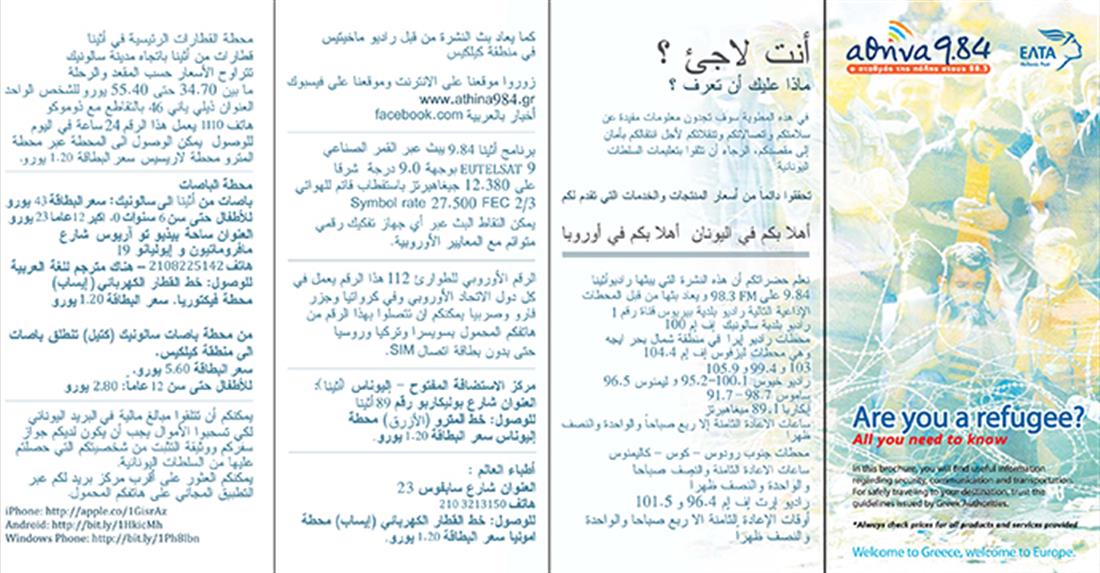 αθήνα 9.84
ο σταθμός της πόλης στους 98.3
ΕΛΤΑ
Hellenic Post
Are you a refugee?
All you need to know
In this brochure, you will find useful information
regarding security, communication and transportation.
For safely traveling to your destination, trust the
guidelines issued by Greek Authorities.
*Always check prices for all products and services provided
Welcome to Greece, welcome to Europe.
أنت لاجئ ؟
ماذا عليك أن تعرف ؟
في هذه المطوية سوف تجدون معلومات مفيدة عن
سلامتكم واتصالاتكم وتنقلاتكم لأجل انتقالكم بأمان
إلى مقصدكم، الرجاء أن تثقوا بتعليمات السلطات
اليونانية
تحققوا دائماً من أسعار المنتجات والخدمات التي تقدم لكم
أهلا بكم في اليونان أهلا بكم في أوروبا
نعلم حضراتكم أن هذه النشرة التي يبثها راديوأثينا
9.84 على 98.3 FM ويعاد بثها من قبل المحطات
الإذاعية التالية راديو بلدية بيريوس قناة رقم 1
راديو بلدية سالونيك إف إم 100
محطات راديو إيرا في منطقة شمال بحر ايجه
وهي محطات ليزفوس إف إم 104.4
103 و 99.4 و 105.9
راديو خيوس 100.1–95.2 و ليمنوس 96.5
ساموس 98.7 – 91.7
ايكاريا 89.1 ميغاهيرتز
ساعات الإعادة الثامنة إلا ربع صباحاً والواحدة والنصف
ظهرا
محطات جنوب رودوس – كوس – كاليمنوس
ساعات الاعادة الثامنة والنصف صباحا
والواحدة والنصف ظهراً
راديو إرت إف إم 96.4 و 101.5
أوقات الإعادة الثامنة الا ربع صباحا والواحدة
والنصف ظهراً
كما يعاد بث النشرة من قبل راديو ماخيتيس
في منطقة كيلكيس
زوروا موقعنا على الانترنت وموقعنا على فيسبوك
www.athina984.gr
أخبار بالعربية facebook.com
برنامج أثينا 9.84 يبث عبر القمر الصناعي
EUTELSAT 9 بوجهة 9.0 درجة شرقا
على 12.380 جيغاهيرتز باستقطاب قائم للهوائي
Symbol rate 27.500 FEC 2/3
يمكن التقاط البث عبر أي جهاز تفكيك رقمي
متوائم مع المعايير الأوروبية.
الرقم الأوروبي للطوارئ 112 هذا الرقم يعمل في
كل دول الاتحاد الأوروبي وفي كرواتيا وجزر
فارو وصربيا يمكنكم ان تتصلوا بهذا الرقم من
هاتفكم المحمول بسويسرا وتركيا وروسيا
حتى بدون بطاقة اتصال SIM.
مركز الاستضافة المفتوح – إليوناس (أثينا):
العنوان شارع بوليكاربو رقم 89 أثينا
للوصول: خط المترو (الأزرق) محطة
إليوناس سعر البطاقة 1.20 يورو.
أطباء العالم :
العنوان شارع سابفوس 23
هاتف 3213150 210
للوصول: خط القطار الكهربائي (إيساب) محطة
امونيا سعر البطاقة 1.20 يورو.
محطة القطارات الرئيسية في أثينا
قطارات من أثينا باتجاه مدينة سالونيك
تتراوح الأسعار حسب المقعد والرحلة
ما بين 34.70 حتى 55.40 يورو للشخص الواحد
العنوان ذيلي ياني 46 بالتقاطع مع ذوموكو
هاتف 1110 يعمل هذا الرقم 24 ساعة في اليوم
للوصول يمكن الوصول الى المحطة عبر محطة
المترو محطة لاريسيس سعر البطاقة 1.20 يورو.
محطة الباصات
باصات من أثينا الى سالونيك: سعر البطاقة 43 يورو
للأطفال حتى سن 6 سنوات 0، اكبر 12عاما 23 يورو
العنوان ساحة بيذيو تو آريوس شارع
مافروماتيون و إيوليانو 19
هاتف 2108225142 – هناك مترجم للغة العربية
للوصول: خط القطار الكهربائي (إيساب)
محطة فيكتوريا. سعر البطاقة 1.20 يورو
من محطة باصات سالونيك (كتيل) تنطلق باصات
الى منطقة كيلكيس.
سعر البطاقة 5.60 يورو.
للأطفال حتى سن 12 عاماً: 2.80 يورو
يمكنكم أن تتلقوا مبالغ مالية في البريد اليوناني
لكي تسحبوا الأموال يجب أن يكون لديكم جواز
سفركم ووثيقة التثبت من شخصيتكم التي حصلتم
عليها من السلطات اليونانية.
يمكنكم العثور على أقرب مركز بريد لكم عبر
التطبيق المجاني على هاتفكم المحمول.
iPhone: http://apple.co/1GisrAz
Android: http://bit.ly/1HkicMh
Windows Phone: http://bit.ly/1Ph8lbn